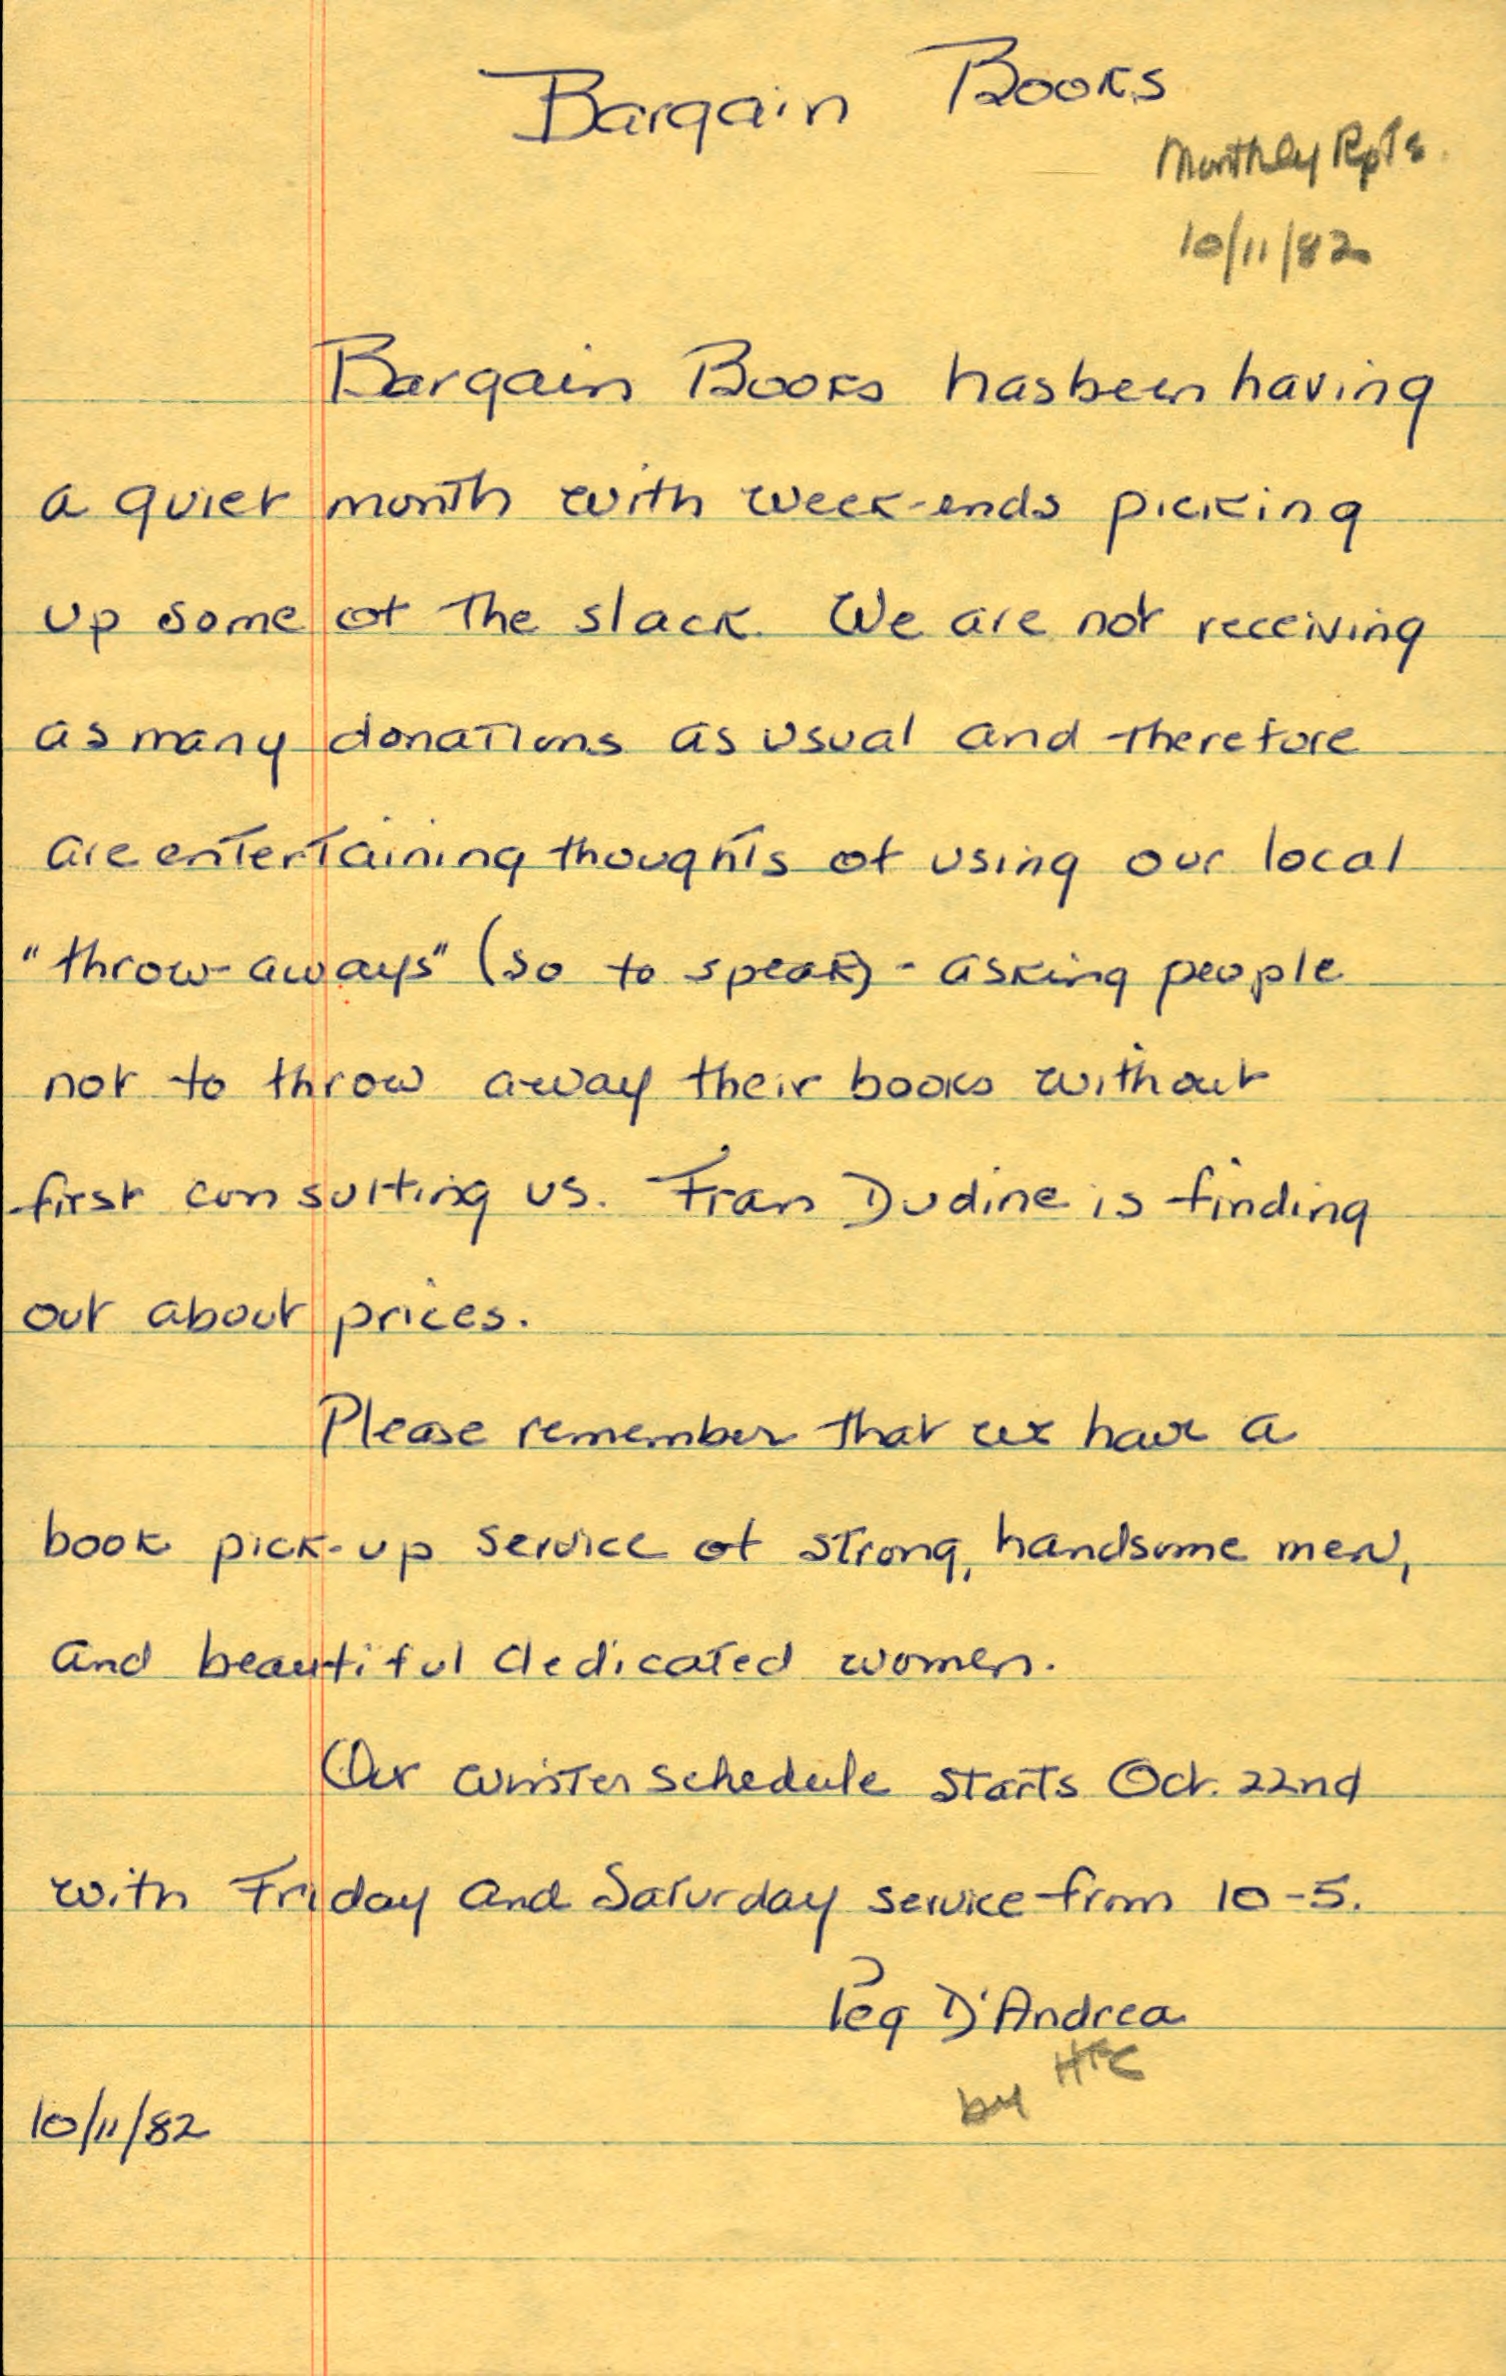 Bargain Books
Monthly Rpts.
10/11/82
Bargain Books has been having
a quiet month with week-ends picking
up some of the slack. We are not receiving
as many donations as usual and therefore
are entertaining thoughts of using our local
"throw-aways" (so to speak) - asking people
not to throw away their books without
first consulting us. Fran Dudine is finding
out about prices.
Please remember that we have a
book pick-up service of strong, handsome men,
and beautiful dedicated women.
Our winter schedule starts Oct. 22nd
with Friday and Saturday service from 10-5.
Peg D'Andrea
by
10/11/82